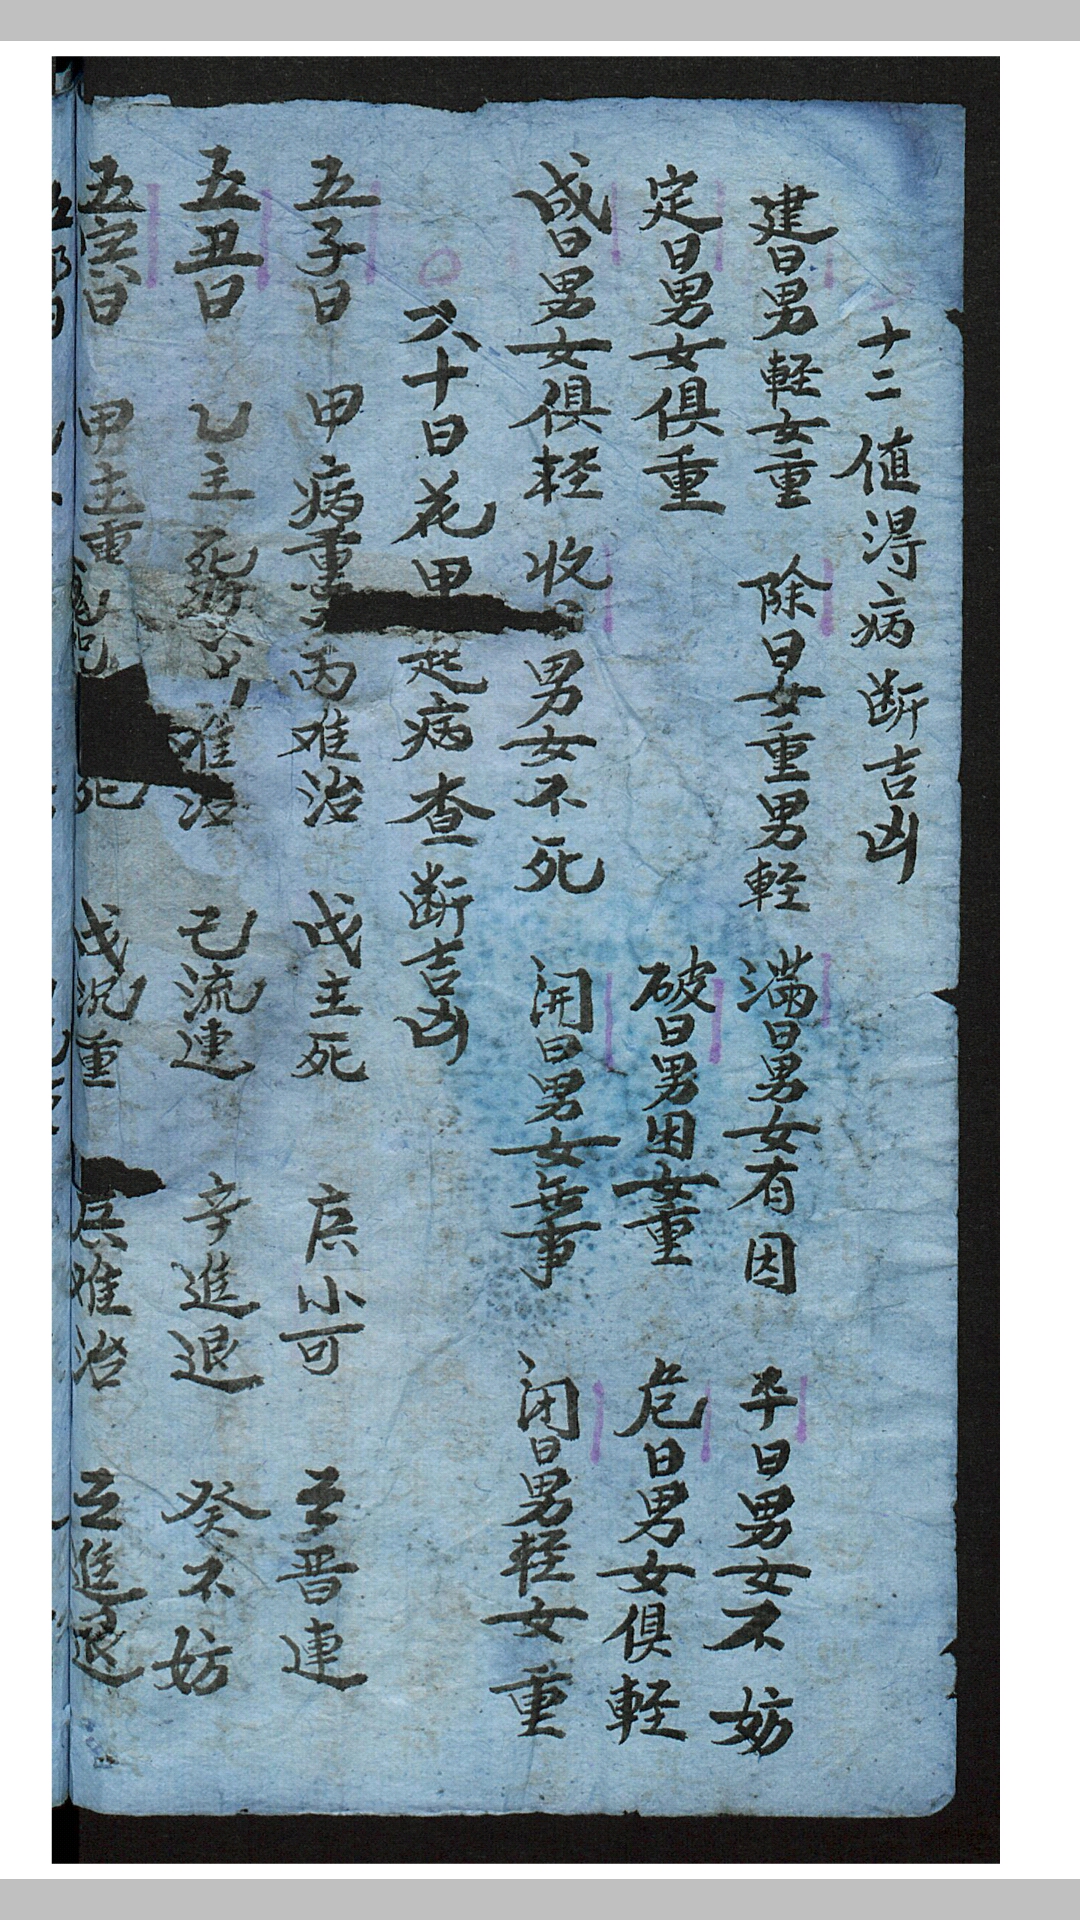 十二值淂病断吉凶
建日男輕女重 除日女重男軽 滿日男女有因 平日男女不妨
定日男女俱重 破日男困女重 危日男女俱軽
成日男女俱轻 收日男女不死 開日男女無事 闭日男轻女重
六十日花甲 起病查断吉凶
五子日 甲病重 丙难治 戊主死 庚小可 壬晋連
五丑日 乙主死 难治 己流連 辛進退 癸不妨
五寅日 甲主重 死 戊沉重 庚难治 壬進退